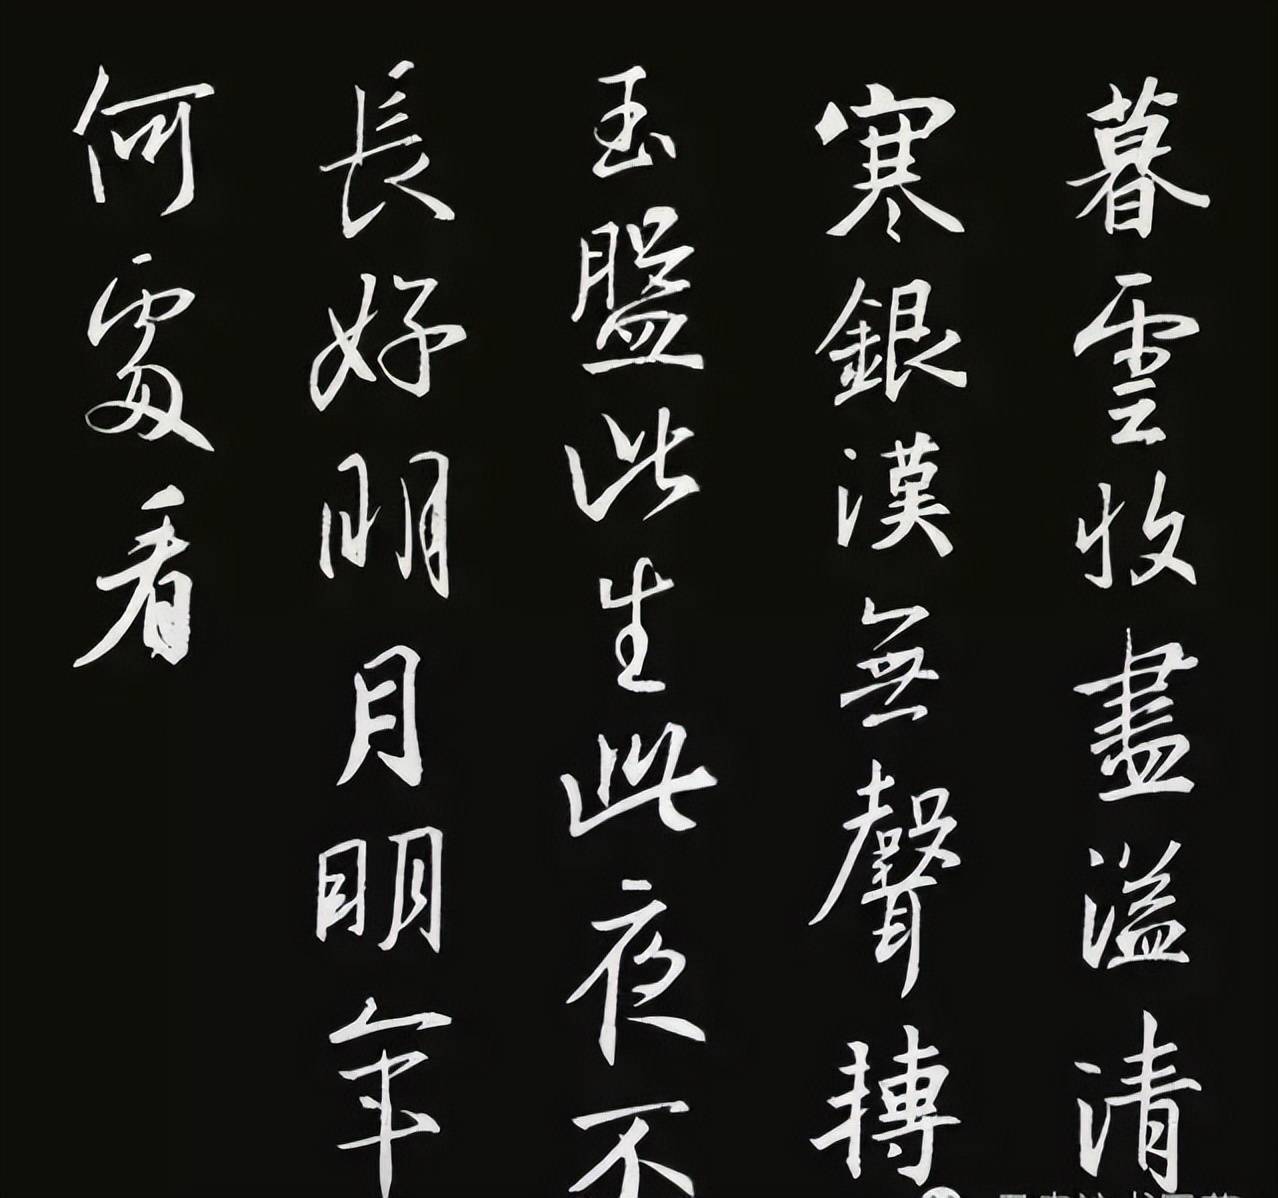 暮雲收盡溢清
寒銀漢無聲轉
玉盤此生此夜不
長好明月明年
何處看